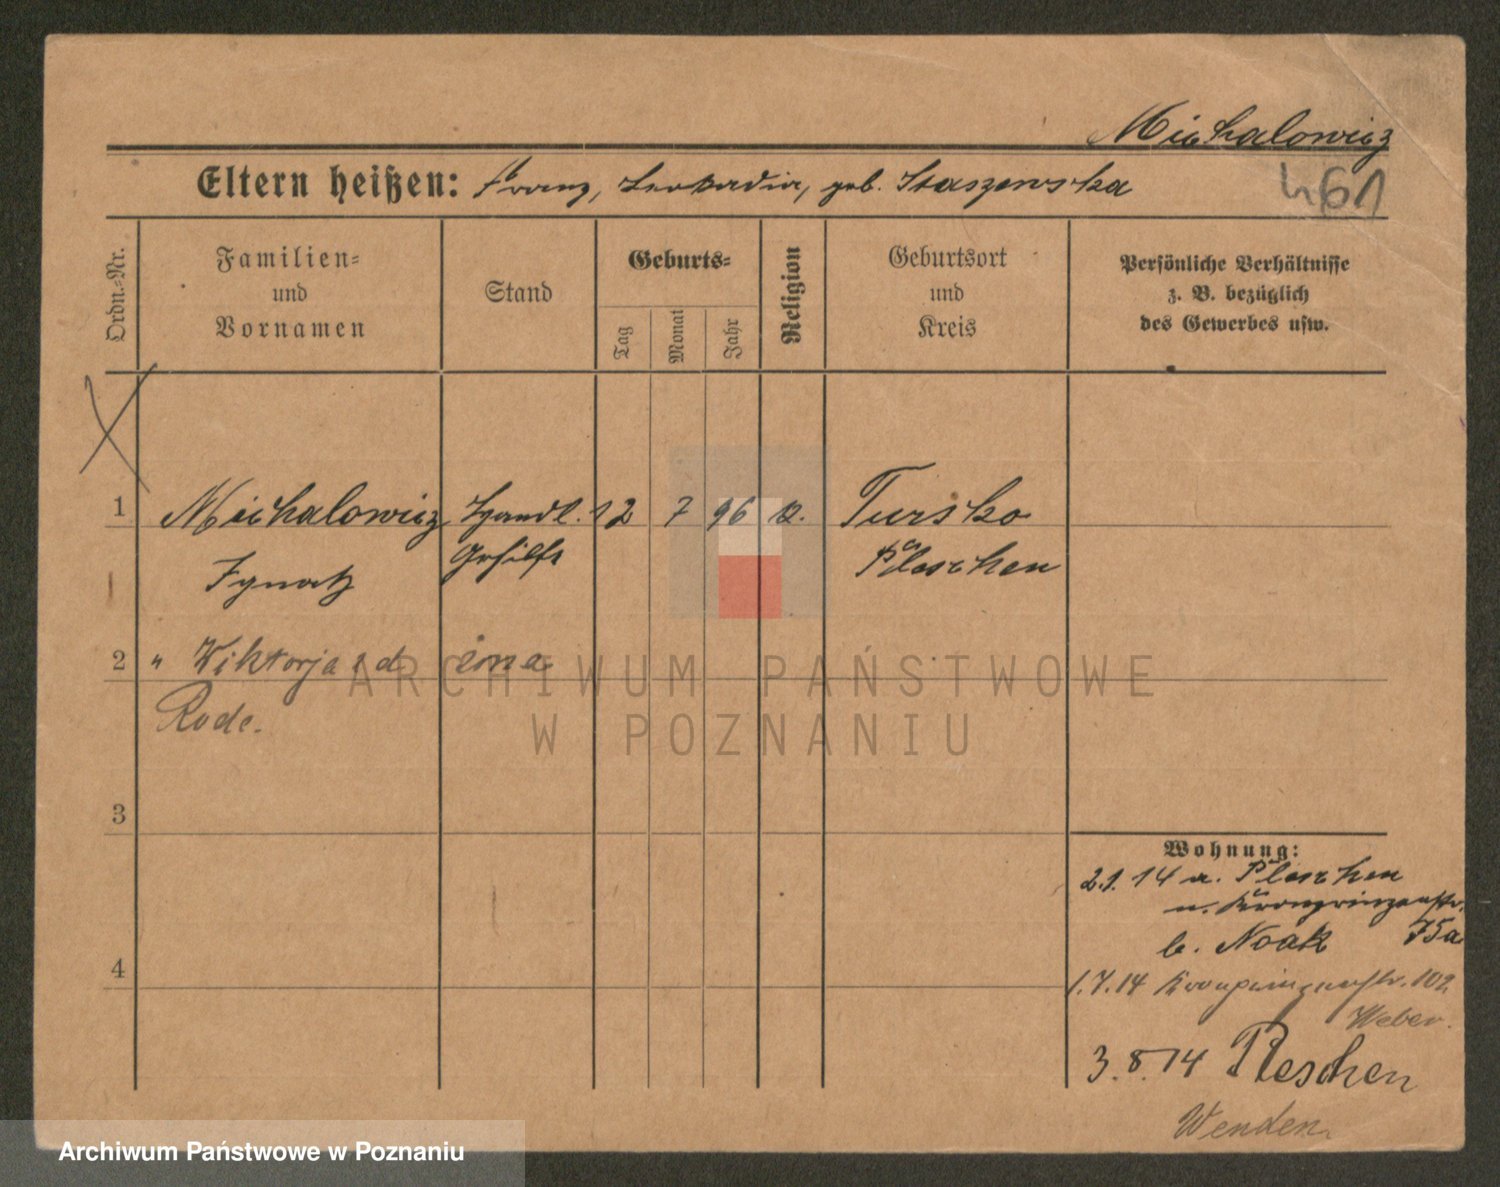 Michalowicz
461
Eltern heißen: Franz, Leokadia, geb. Staszewska
Ordn.-Nr.
Familien-
und
Vornamen
Stand
Geburts-
Tag
Monat
Jahr
Religion
Geburtsort
und
Kreis
Persönliche Verhältnisse
z. B. bezüglich
des Gewerbes usw.
1 Michalowicz Handl. 12 7 96 k. Tursko
Ignatz Gehilfe Pleschen
2 " Wiktorja
Rode.
3
4
Wohnung:
2.1.14 a. Pleschen
n. Kronprinzenstr.
b. Noak 75a
1.7.14 Kronprinzenstr. 102
Weber.
3.8.14 Pleschen
Wenden.
ARCHIWUM PAŃSTWOWE
W POZNANIU
Archiwum Państwowe w Poznaniu